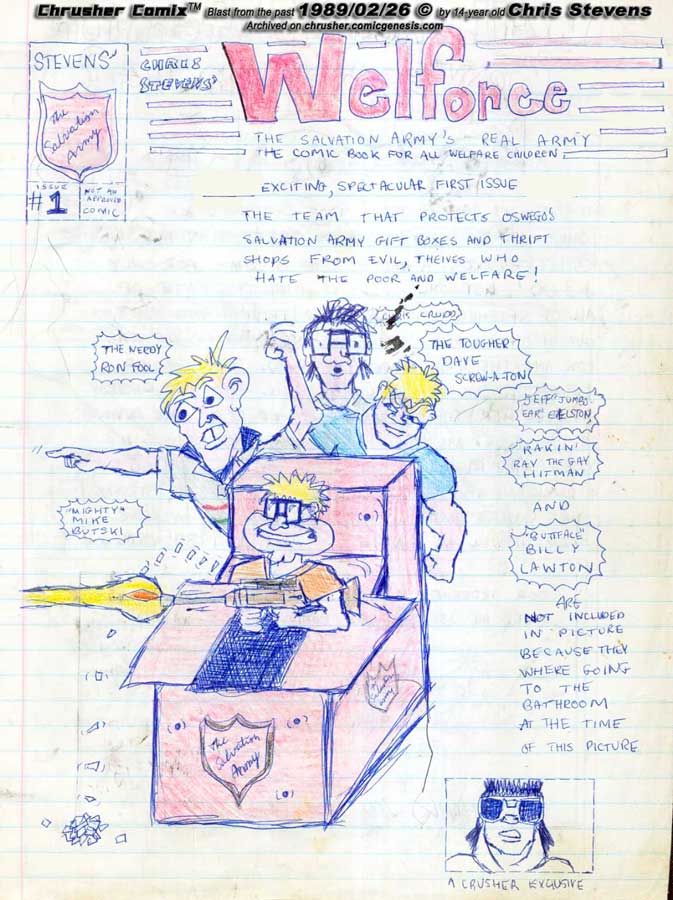 Chrusher Comix™ Blast from the past 1989/02/26 © by 14-year old Chris Stevens
Archived on chrusher.comicgenesis.com
STEVENS'
The
Salvation
Army
ISSUE
#1
NOT AN
APPROVED
COMIC
CHRIS
STEVENS'
Welforce
THE SALVATION ARMY'S REAL ARMY
THE COMIC BOOK FOR ALL WELFARE CHILDREN
EXCITING, SPECTACULAR FIRST ISSUE
THE TEAM THAT PROTECTS OSWEGO'S
SALVATION ARMY GIFT BOXES AND THRIFT
SHOPS FROM EVIL, THEIVES WHO
HATE THE POOR AND WELFARE!
CRUDD
THE NERDY
RON FOOL
THE TOUGHER
DAVE
SCREW-A-TON
"JEFF "JUMBO
EAR"
RAKIN'
RAY THE GAY
HITMAN
"MIGHTY"
MIKE
BUTSKI
AND
"BUTTFACE"
BILLY
LAWTON
ARE
NOT INCLUDED
IN PICTURE
BECAUSE THEY
WHERE GOING
TO THE
BATHROOM
AT THE TIME
OF THIS PICTURE
The
Salvation
Army
A CRUSHER EXCLUSIVE